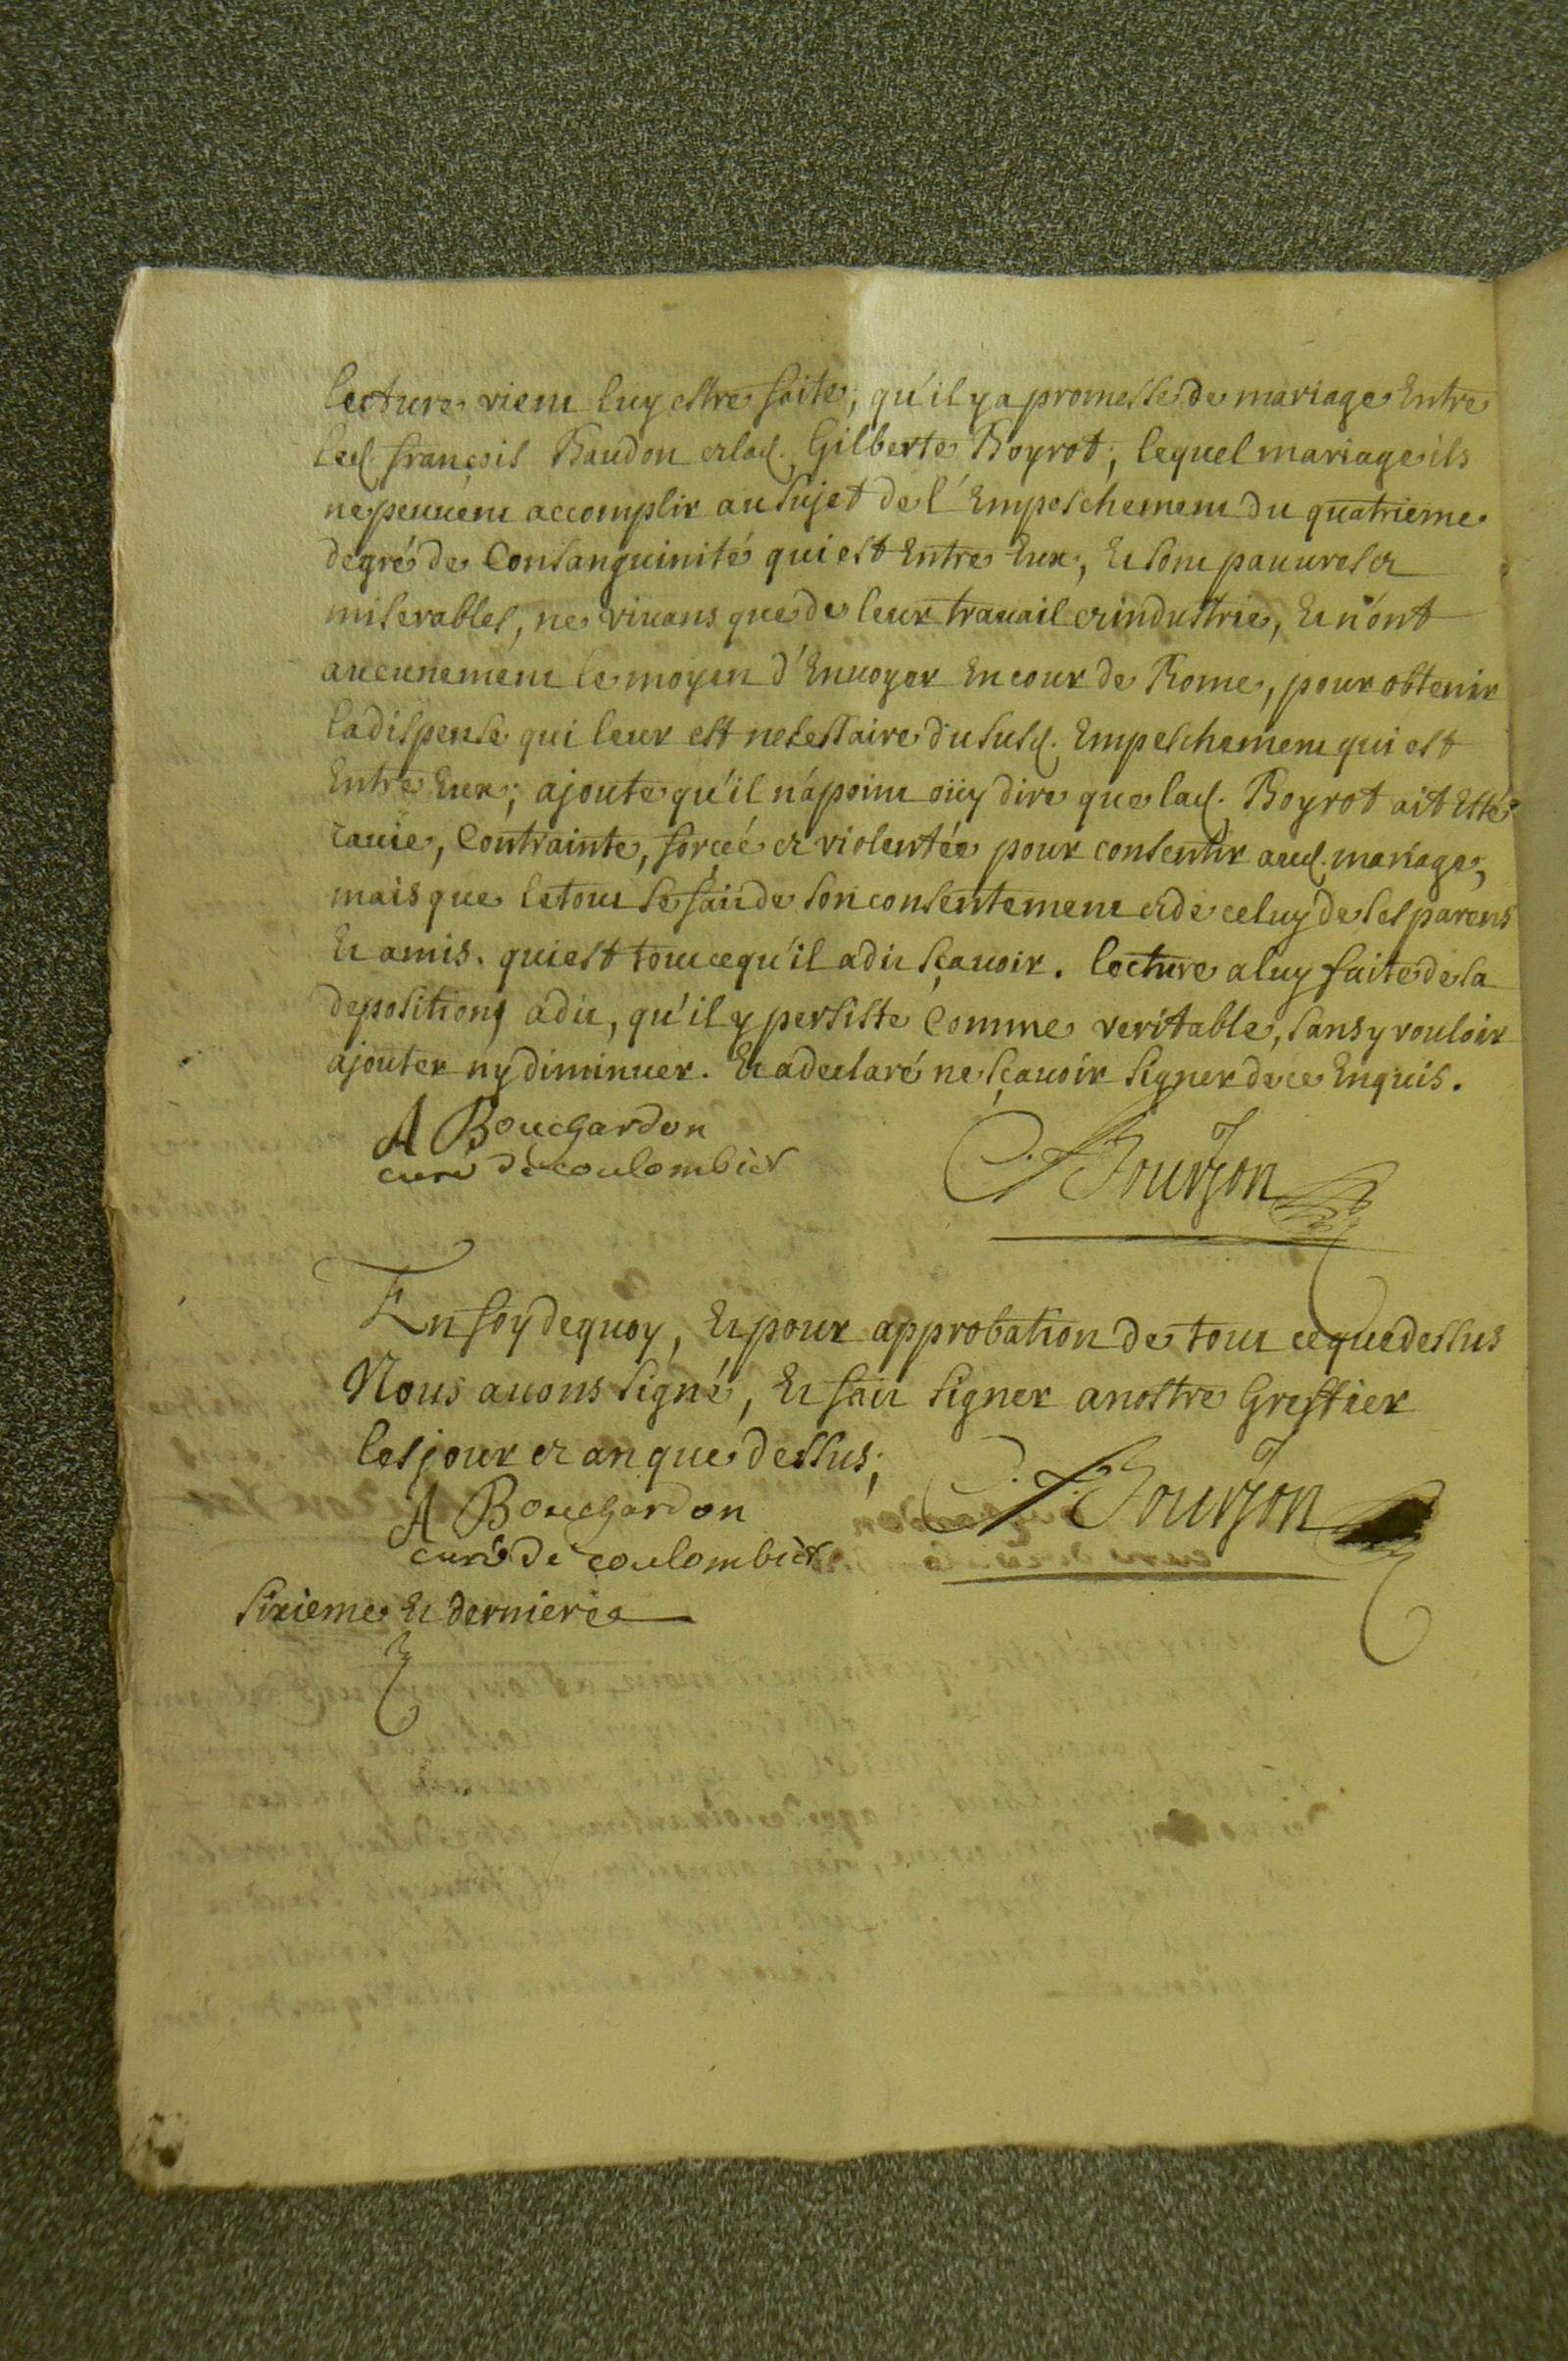 lecture vient luy estre faite, qu'il y a promesse de mariage Entre
led. françois Baudon et lad. Gilberte Boyrot; lequel mariage ils
ne peuuent accomplir au sujet de l'Empeschement du quatrieme
degré de Consanguinité qui est Entre Eux, Et sont pauures et
miserables, ne viuans que de leur trauail et industrie, Et n'ont
aucunement le moyen d'Enuoyer En cour de Rome, pour obtenir
la dispense qui leur est necessaire du susd. Empeschement qui est
Entre Eux; ajoute qu'il n'a point oüy dire que lad. Boyrot ait Esté
rauie, Contrainte, forcée et violentée pour consentir aud. mariage;
mais que le tout se fait de son consentement et de celuy de ses parens
Et amis. qui est tout ce qu'il a dit sçauoir. lecture a luy faite de sa
deposition, a dit, qu'il y persiste Comme veritable, sans y vouloir
ajouter ny diminuer. Et a declaré ne sçauoir signer de ce Enquis.
A Bouchardon
curé de coulombier
Bourzon
En foy de quoy, Et pour approbation de tout ce que dessus
Nous auons signé, Et fait signer a nostre Greffier
les jour et an que dessus;
A Bouchardon
curé de coulombier
Bourzon
sixieme Et derniere